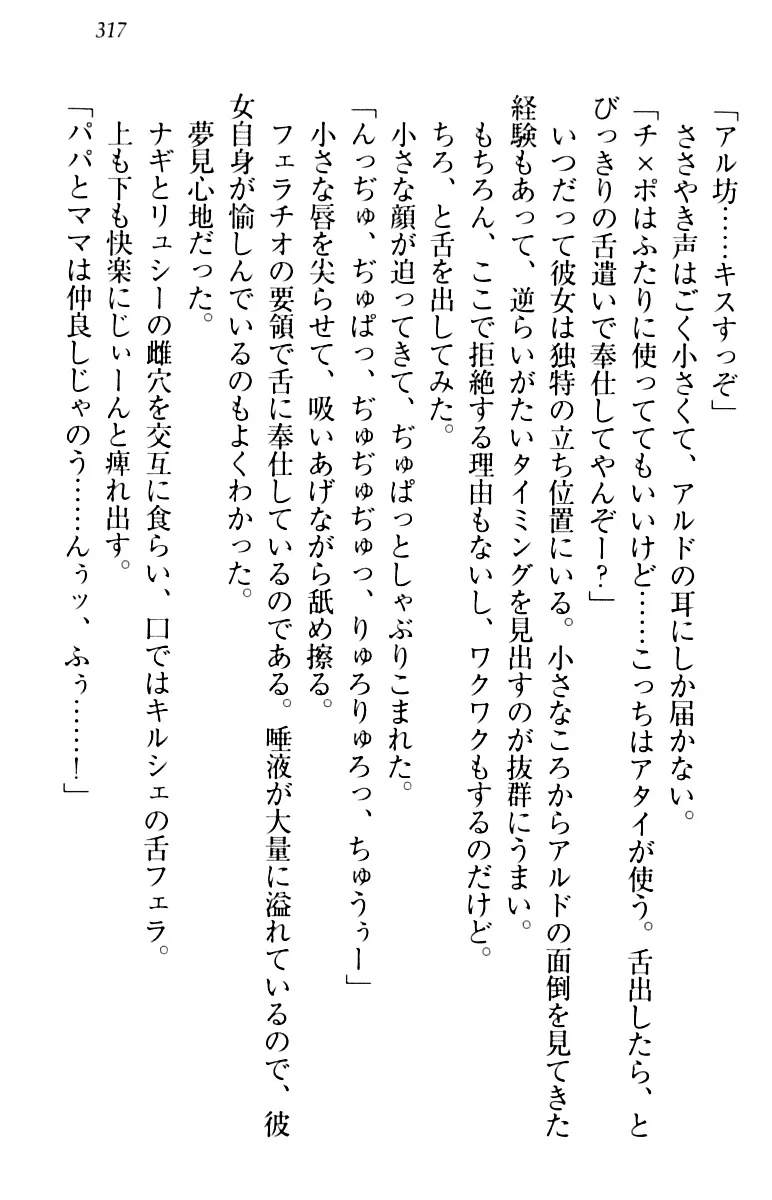 317
「アル坊……キスすっぞ」
ささやき声はごく小さくて、アルドの耳にしか届かない。
「チ×ポはふたりに使っててもいいけど……こっちはアタイが使う。舌出したら、と
びっきりの舌遣いで奉仕してやんぞー？」
いつだって彼女は独特の立ち位置にいる。小さなころからアルドの面倒を見てきた
経験もあって、逆らいがたいタイミングを見出すのが抜群にうまい。
もちろん、ここで拒絶する理由もないし、ワクワクもするのだけど。
ちろ、と舌を出してみた。
小さな顔が迫ってきて、ぢゅぱっとしゃぶりこまれた。
「んっぢゅ、ぢゅぱっ、ぢゅぢゅぢゅっ、りゅろりゅろっ、ちゅうぅー」
小さな唇を尖らせて、吸いあげながら舐め擦る。
フェラチオの要領で舌に奉仕しているのである。唾液が大量に溢れているので、彼
女自身が愉しんでいるのもよくわかった。
夢見心地だった。
ナギとリュシーの雌穴を交互に食らい、口ではキルシェの舌フェラ。
上も下も快楽にじぃーんと痺れ出す。
「パパとママは仲良しじゃのう……んぅッ、ふぅ……！」